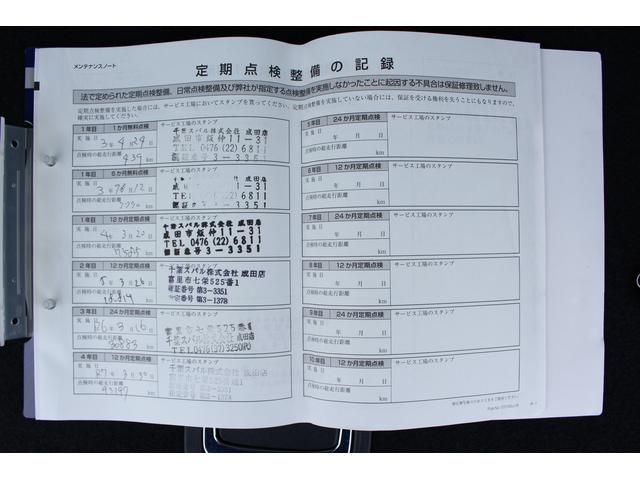 メンテナンスノート
定期点検整備の記録
法で定められた定期点検整備、日常点検整備及び弊社が指定する点検整備を実施しなかったことに起因する不具合は保証修理致しません。
定期点検整備を実施した場合には、サービス工場においてスタンプを買ってください。定期点検整備を実施していない場合には、保証を受ける権利を失うことにもなりますので、
確実に実施してください。
1年目 1か月無料点検
サービス工場のスタンプ
実施日 3年4月29日
点検時の総走行距離
439 km
千葉スバル株式会社 成田店
成田市飯仲11-31
TEL 0476(22)6811
認証番号3-3351
1年目 6か月無料点検
サービス工場のスタンプ
実施日
点検時の総走行距離
km
1年目 12か月定期点検
サービス工場のスタンプ
実施日 4年3月20日
点検時の総走行距離
km
千葉スバル株式会社 成田店
成田市飯仲11-31
TEL 0476(22)6811
認証番号3-3351
2年目 12か月定期点検
サービス工場のスタンプ
実施日 5年3月26日
点検時の総走行距離
km
千葉スバル株式会社 成田店
富里市七栄525番1
認証番号 第3-3351
指定番号 第3-1378
3年目 24か月定期点検
サービス工場のスタンプ
実施日 R6年3月16日
点検時の総走行距離
30883 km
富里市七栄525番1
千葉スバル株式会社 成田店
TEL0476(37)3250
4年目 12か月定期点検
サービス工場のスタンプ
実施日 R7年3月30日
点検時の総走行距離
43197 km
千葉スバル株式会社 成田店
富里市七栄525番1
認証番号 第3-3351
指定番号 第3-1378
5年目 24か月定期点検
サービス工場のスタンプ
実施日 年 月 日
点検時の総走行距離
km
6年目 12か月定期点検
サービス工場のスタンプ
実施日 年 月 日
点検時の総走行距離
km
7年目 24か月定期点検
サービス工場のスタンプ
実施日 年 月 日
点検時の総走行距離
km
8年目 12か月定期点検
サービス工場のスタンプ
実施日 年 月 日
点検時の総走行距離
km
9年目 24か月定期点検
サービス工場のスタンプ
実施日 年 月 日
点検時の総走行距離
km
10年目 12か月定期点検
サービス工場のスタンプ
実施日 年 月 日
点検時の総走行距離
km